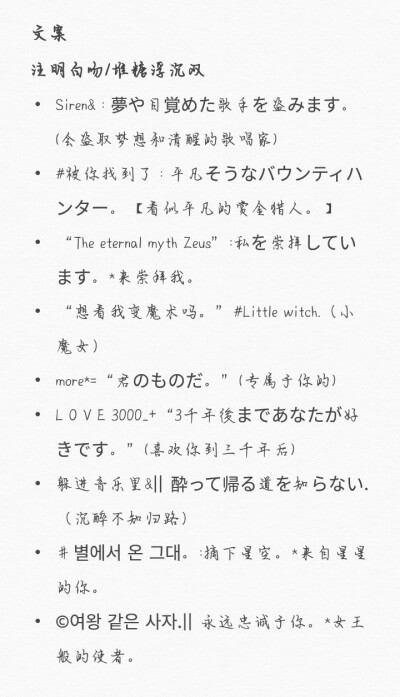 文案
注明白吻/堆糖浮沉双
• Siren&：夢や目覚めた歌手を盗みます。
(会盗取梦想和清醒的歌唱家)
• #被你找到了：平凡そうなバウンティハ
ンター。【看似平凡的赏金猎人。】
• “The eternal myth Zeus” :私を崇拝してい
ます。*来崇拜我。
• “想看我变魔术吗。” #Little witch.（小
魔女）
• more*=“君のものだ。”(专属于你的)
• L O V E 3000_+“3千年後まであなたが好
きです。”(喜欢你到三千年后)
• 躲进音乐里&|| 酔って帰る道を知らない.
（沉醉不知归路）
• # 별에서 온 그대。:摘下星空。*来自星星
的你。
• ©여왕 같은 사자.|| 永远忠诚于你。*女王
般的使者。